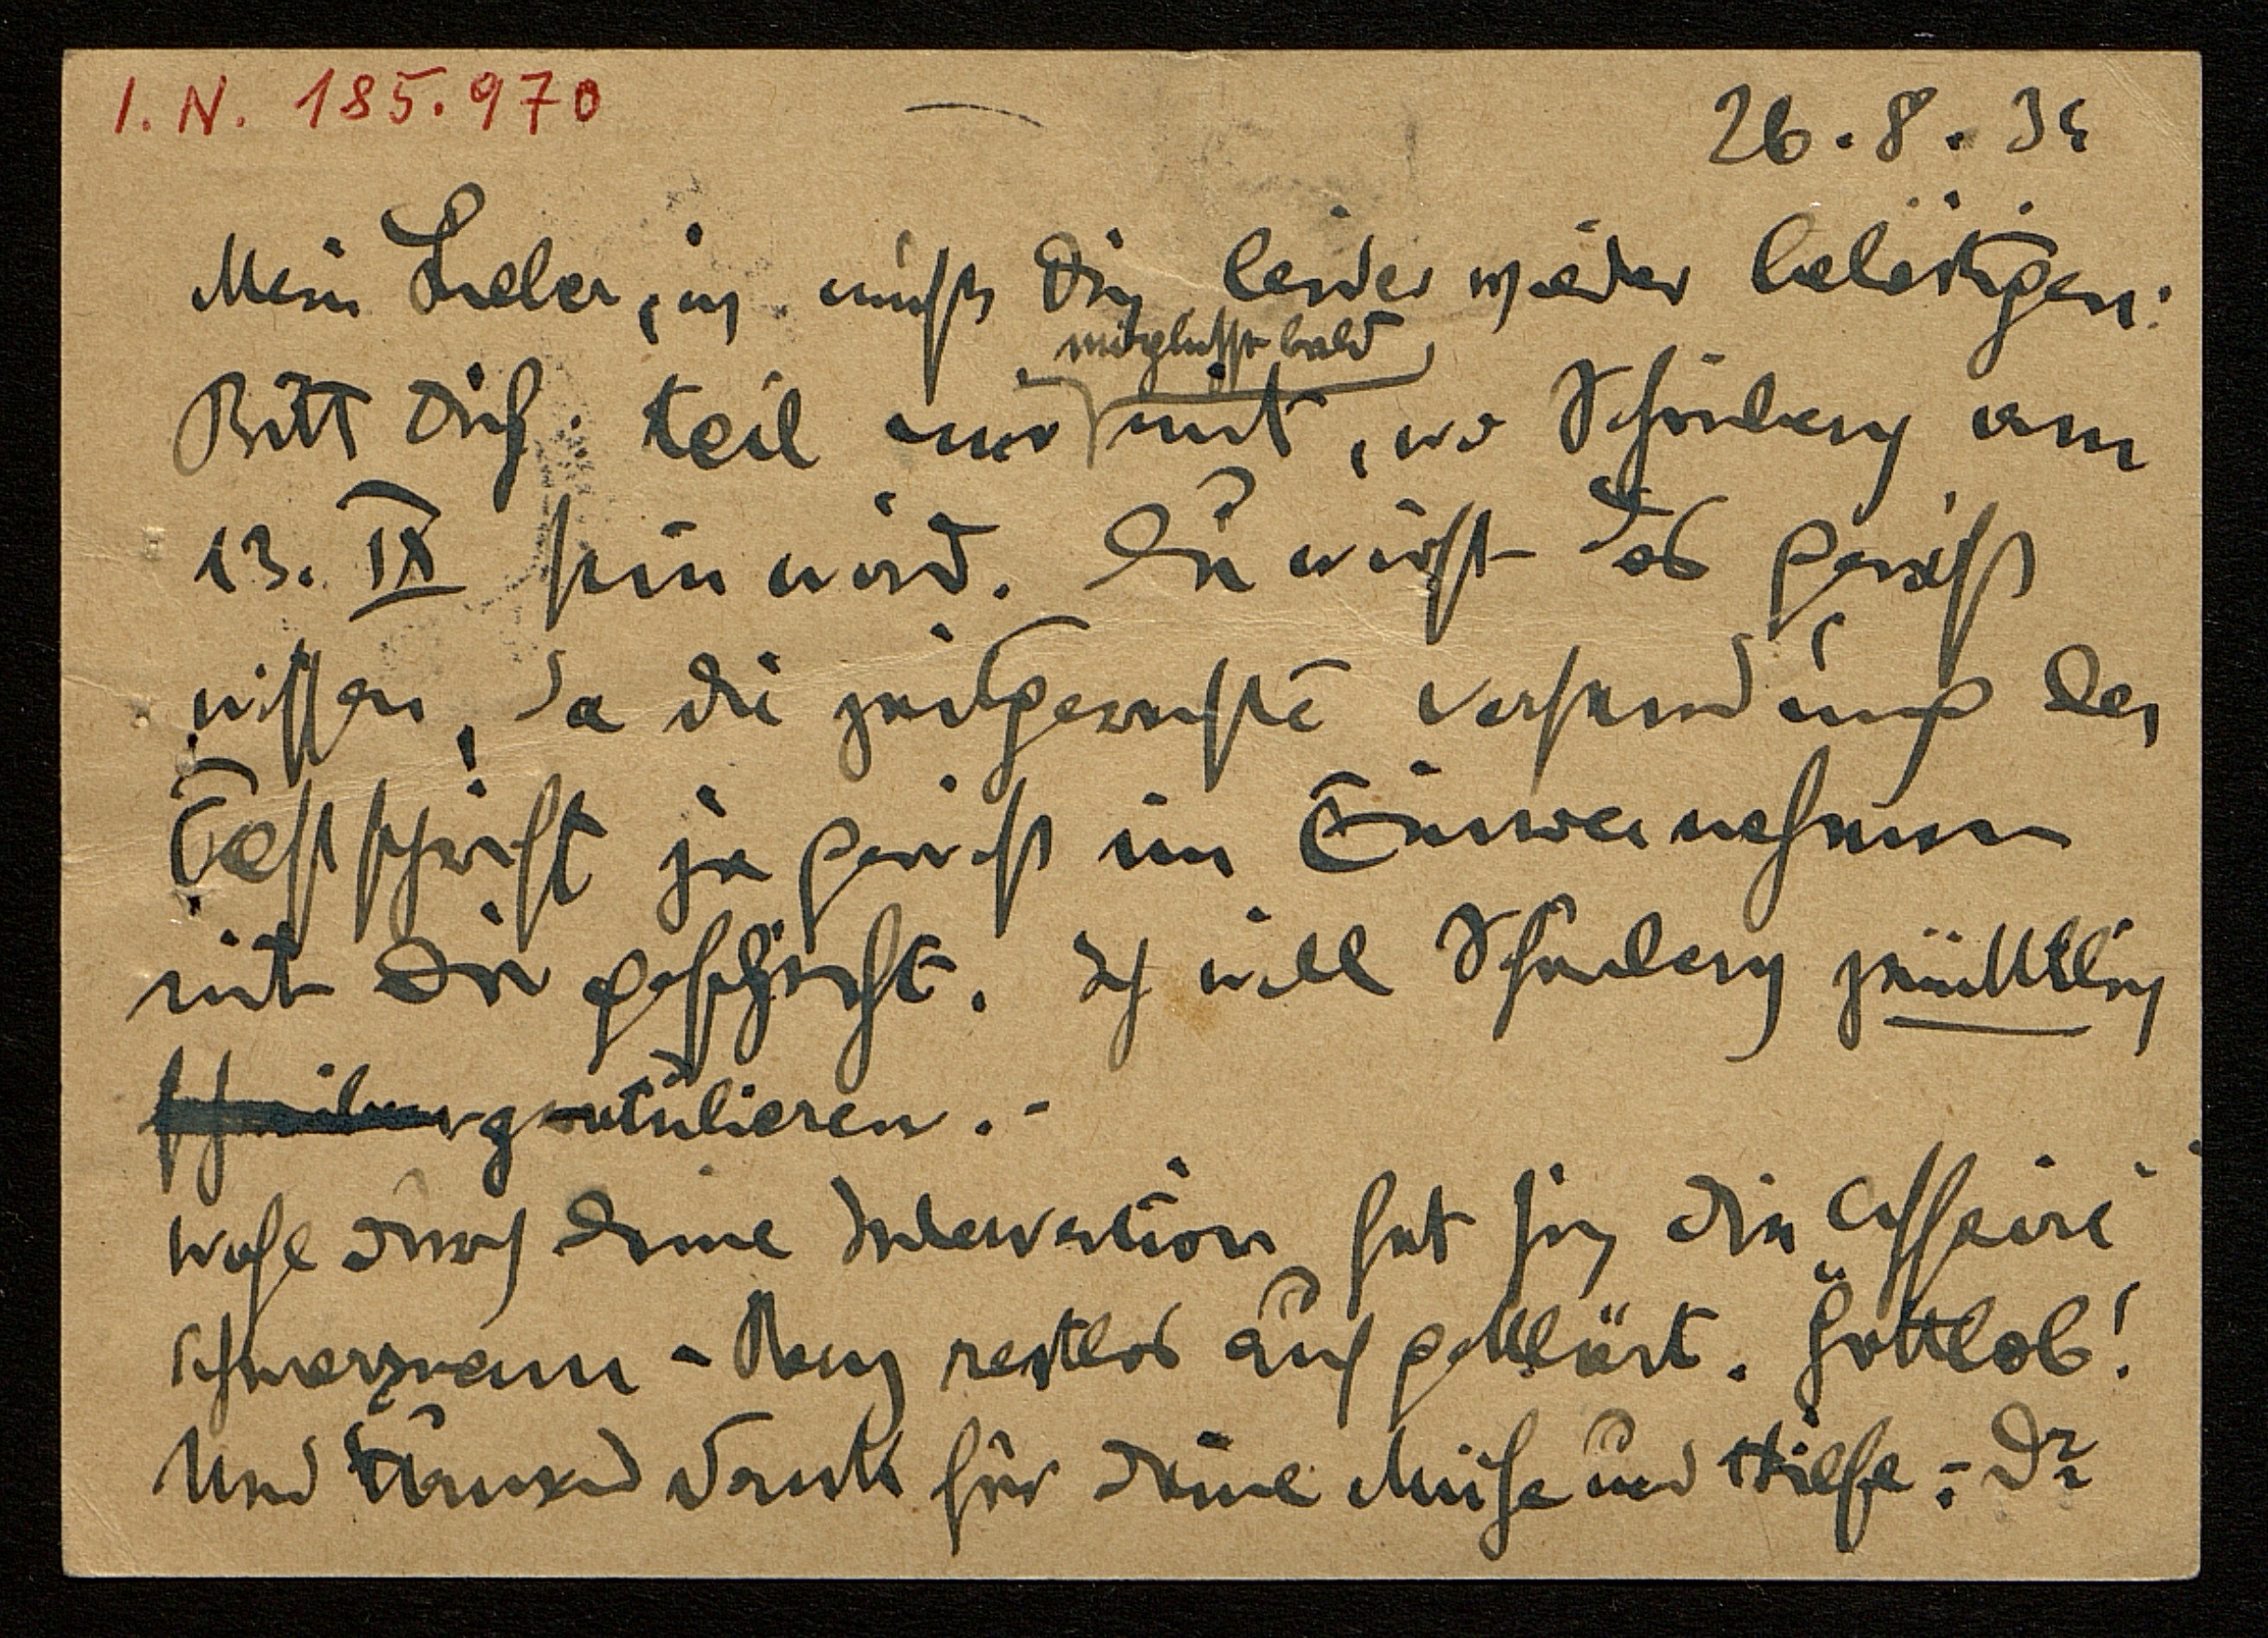 I. N. 185.970
26. 8. 34
Mein Lieber, ich muß Dich leider wieder belästigen:
möglichst bald
Bitt Dich: teil mir mit, wo Schönberg am
13. IX sein wird. Du wirst das gewiß
wissen, da die zeitgerechte Versendung der
Festschrift ja gewiß im Einvernehmen
mit Dir geschieht. Ich will Schönberg pünktlich
schreiben gratulieren. -
Wohl durch Deine Intervention hat sich die Affaire
Schwarzmann - Berg restlos aufgeklärt. Gottlob!
Und tausend Dank für Deine Mühe und Hilfe =: Dr